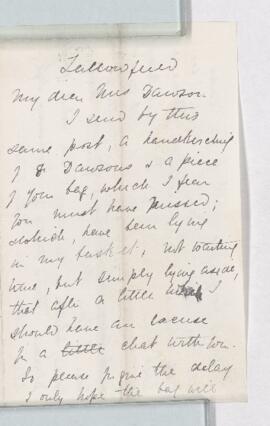 Fallowfield
My dear Mrs Dawson.
I send by this
same post, a handkerchief
of Dr Dawsons & a piece
of your bag, which I fear
you must have missed;
which, have been lying
in my basket, not wanting
time, but simply lying aside,
that after a little I
should have an excuse
for a little chat with you.
So please forgive the delay
I only hope the bag will